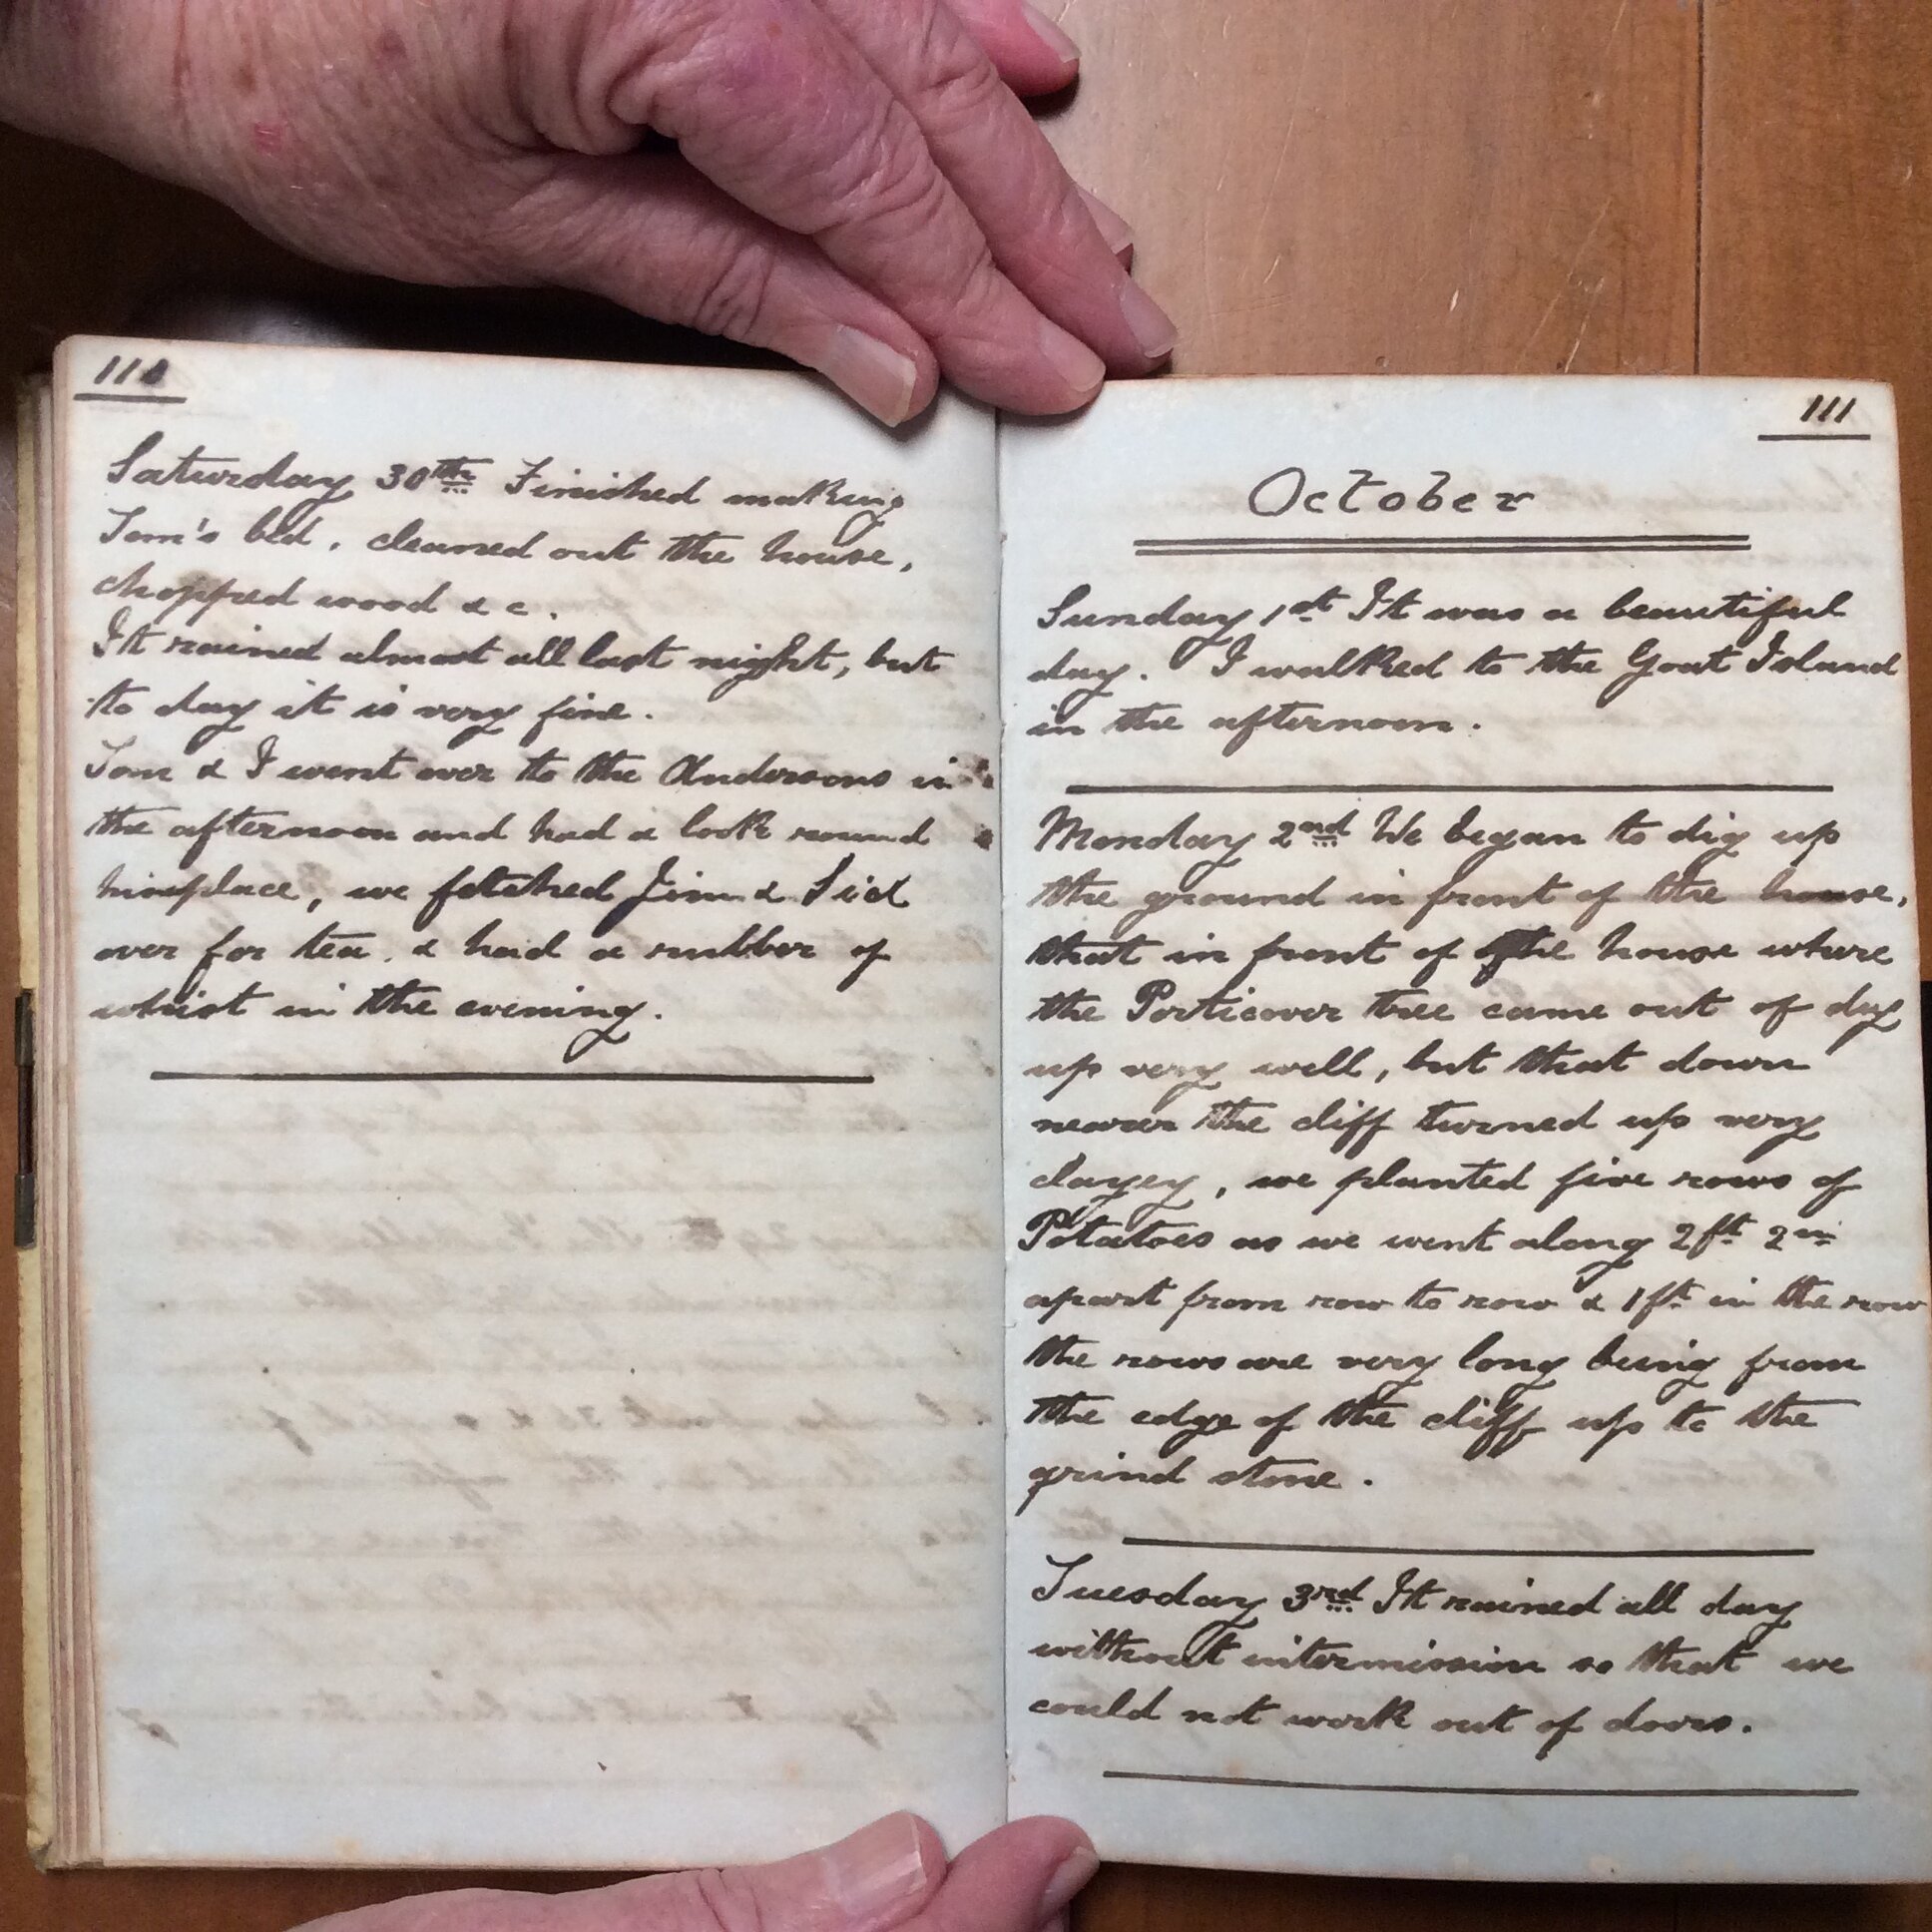 110
Saturday 30th Finished making
Tom's bed, cleaned out the house,
chopped wood & c.
It rained almost all last night, but
to day it is very fine.
Tom & I went over to the Andersons in
the afternoon and had a look round
his place, we fetched Jim & Sid
over for tea, & had a rubber of
whist in the evening.
111
October
Sunday 1st It was a beautiful
day. I walked to the Goat Island
in the afternoon.
Monday 2nd We began to dig up
the ground in front of the house,
that in front of the house where
the tree came out of dug
up very well, but that down
nearer the cliff turned up very
clayey, we planted five rows of
Potatoes as we went along 2ft 2in
apart from row to row & 1ft in the row
the rows are very long being from
the edge of the cliff up to the
grind stone.
Tuesday 3rd It rained all day
without intermission so that we
could not work out of doors.